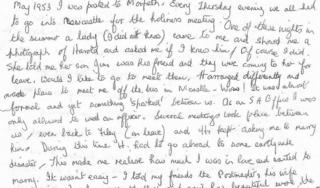 May 1953 I was posted to Morpeth. Every Thursday evening we all had
to go into Newcastle for the holiness meeting. One of these nights in
the summer a lady (I did not know) came to me and showed me a
photograph of Harold and asked me if I knew him! Of course I did.
She told me her son Jim was his friend and they were coming to her for
leave. Would I like to go to meet them. It arranged differently and
made plans to meet me off the bus in Newcastle. Wow! It was almost
formal and yet something 'sparked' between us. As an S.A Officer I was
only allowed to wed an officer. Several meetings took place between
us, even back to (on leave) and H. kept asking me to marry
him. During this time H. had to go abroad to some earthquake
disaster. This made me realise how much I was in love and wanted to
marry. It wasn't easy - I told my friends the his wife
beautiful the